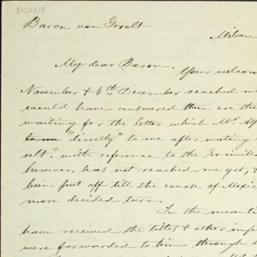 DCXXIII
Baron von Gerolt
Milwau
My dear Baron.
Your welcom
November & 6th December reached me
would have answered them ere this
waiting for the letter which Mr.
"directly" to me after
ulto. with reference to the
however, has not reached me yet, &
been put off till the cause of Mexic
more decided turn.
In the meanti
have received the titles & other infor
were forwarded to him through